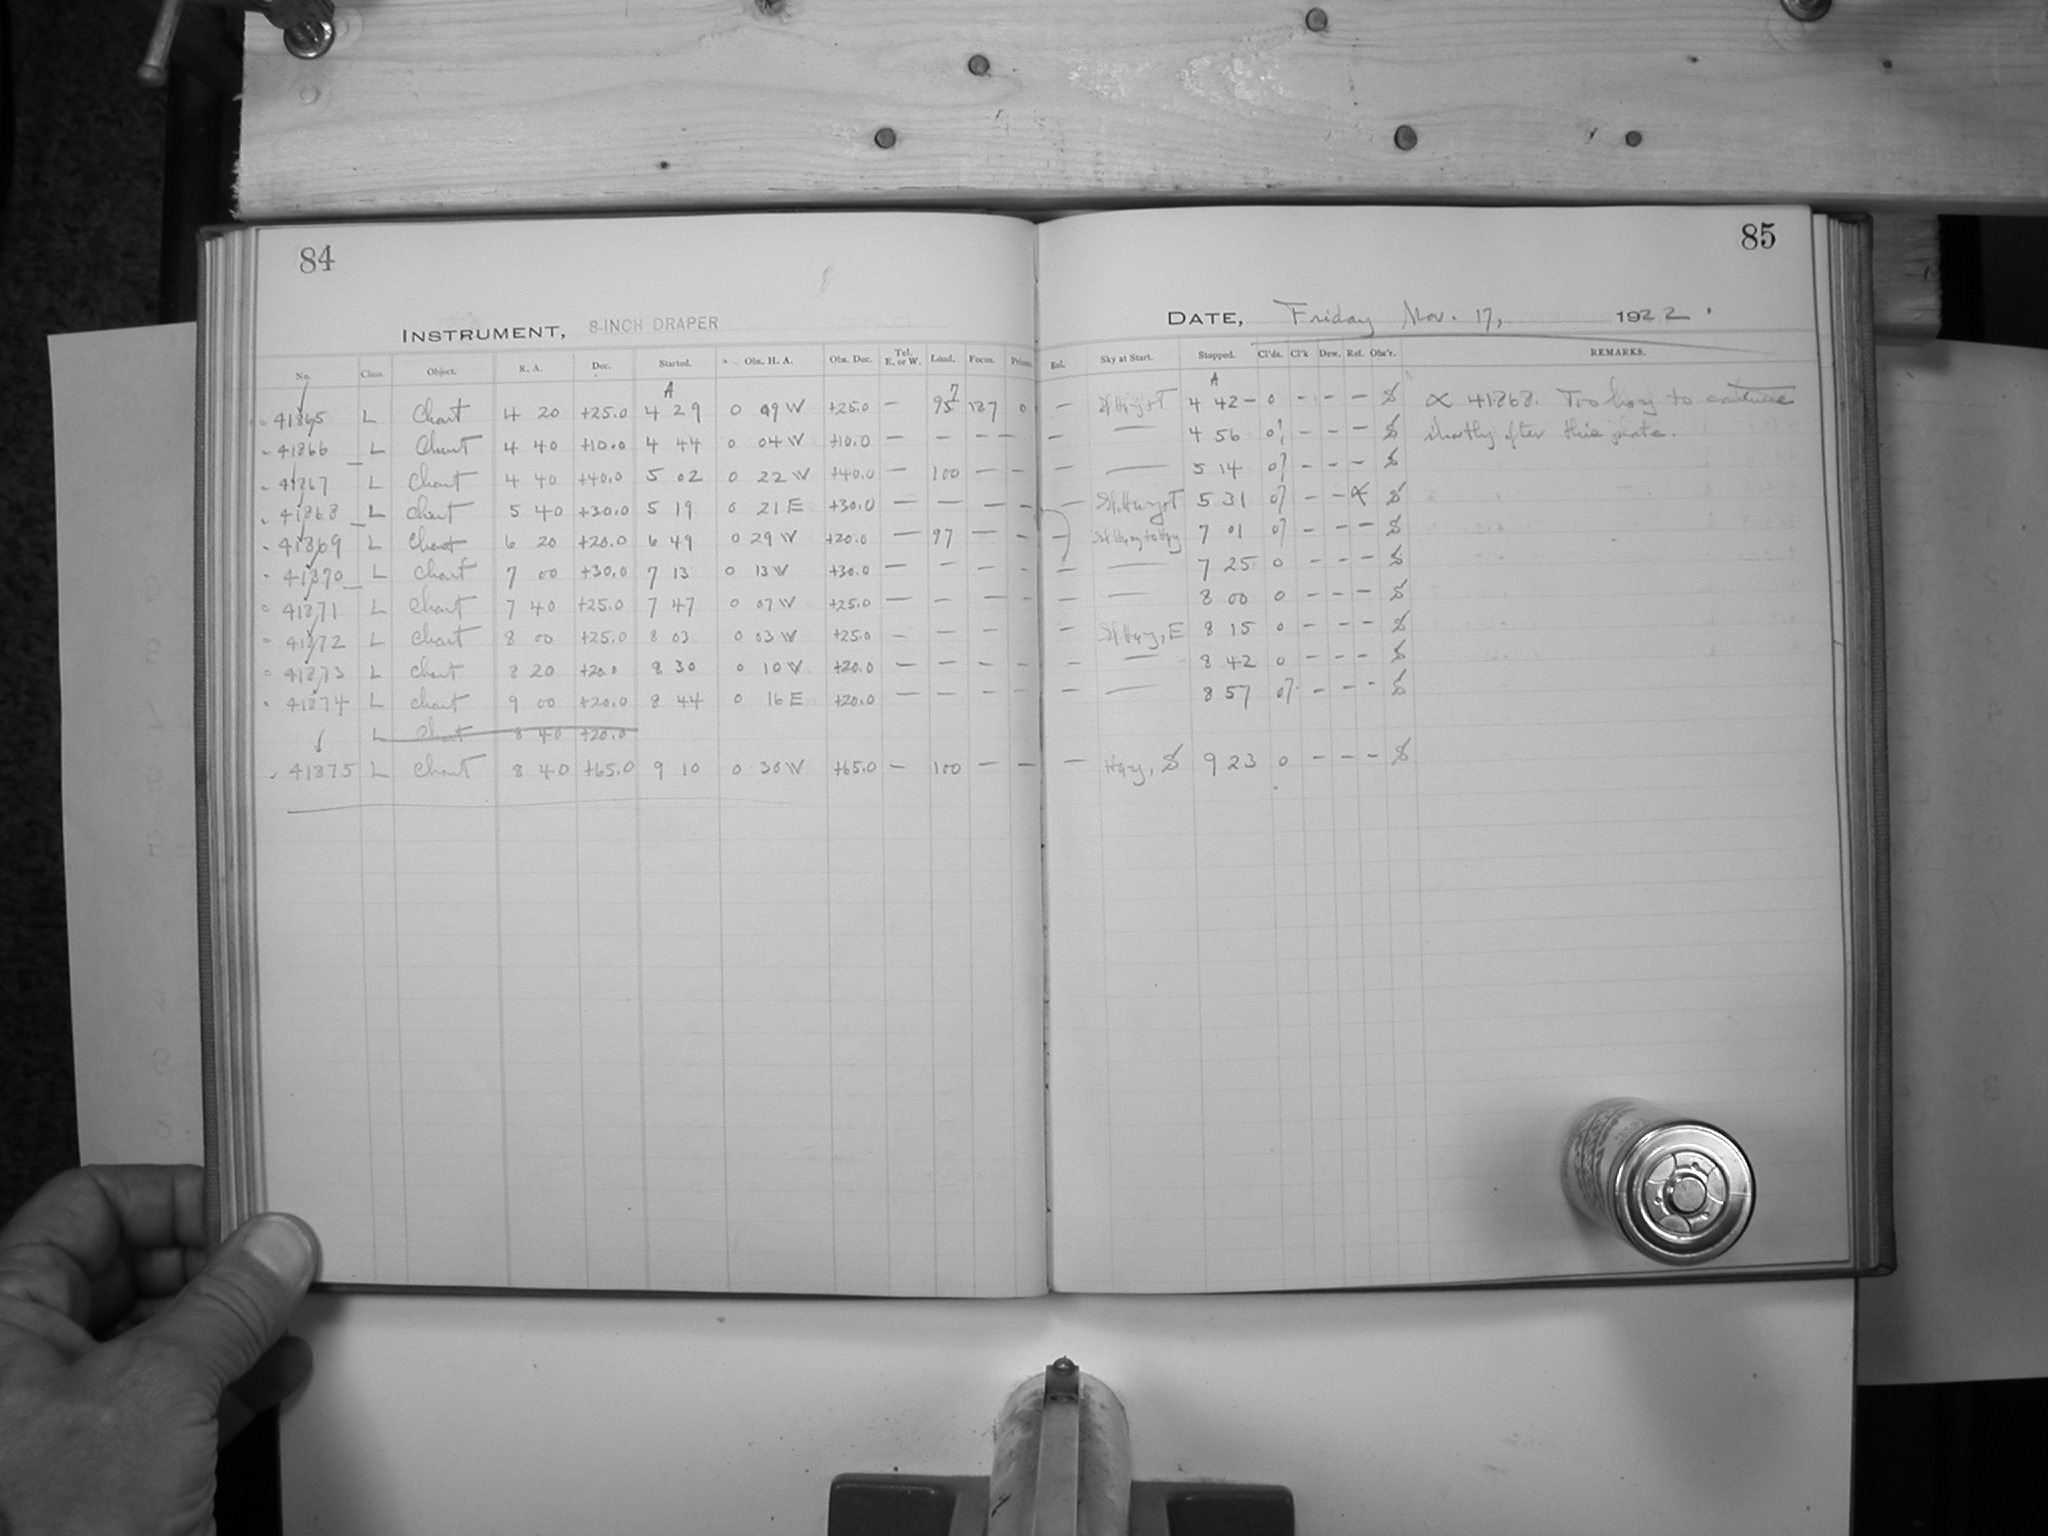 84
85
INSTRUMENT, 8-INCH DRAPER
DATE, Friday Nov. 17, 1922.
No. Class. Object. R. A. Dec. Started. Obs. H. A. Obs. Dec. Tel. E. or W. Load. Focus. Prism. Enl. Sky at Start. Stopped. Cl'ds. Cl'k Dew. Ref. Obs'r. REMARKS.
A A
41865 L Chart 4 20 +25.0 4 29 0 09 W +25.0 — 95 7 187 0 — 4 42 - 0 - - - S ∝ 41868. Too hazy to continue
41866 L Chart 4 40 +10.0 4 44 0 04 W +10.0 — — — — — — 4 56 0? - - - S shortly after this plate.
41867 L Chart 4 40 +40.0 5 02 0 22 W +40.0 — 100 — — — — 5 14 0? - - - S
41868 L Chart 5 40 +30.0 5 19 0 21 E +30.0 — — — — — 5 31 0? - - ∝ S
41869 L Chart 6 20 +20.0 6 49 0 29 W +20.0 — 97 — — — 7 01 0? - - - S
41870 L Chart 7 00 +30.0 7 13 0 13 W +30.0 — — — — — — 7 25 0 - - - S
41871 L Chart 7 40 +25.0 7 47 0 07 W +25.0 — — — — — — 8 00 0 - - - S
41872 L Chart 8 00 +25.0 8 03 0 03 W +25.0 — — — — E 8 15 0 - - - S
41873 L Chart 8 20 +20.0 8 30 0 10 W +20.0 — — — — — — 8 42 0 - - - S
41874 L Chart 9 00 +20.0 8 44 0 16 E +20.0 — — — — — — 8 57 0? - - - S
L Chart 8 40 +20.0
41875 L Chart 8 40 +65.0 9 10 0 30 W +65.0 — 100 — — — Hazy, S 9 23 0 - - - S